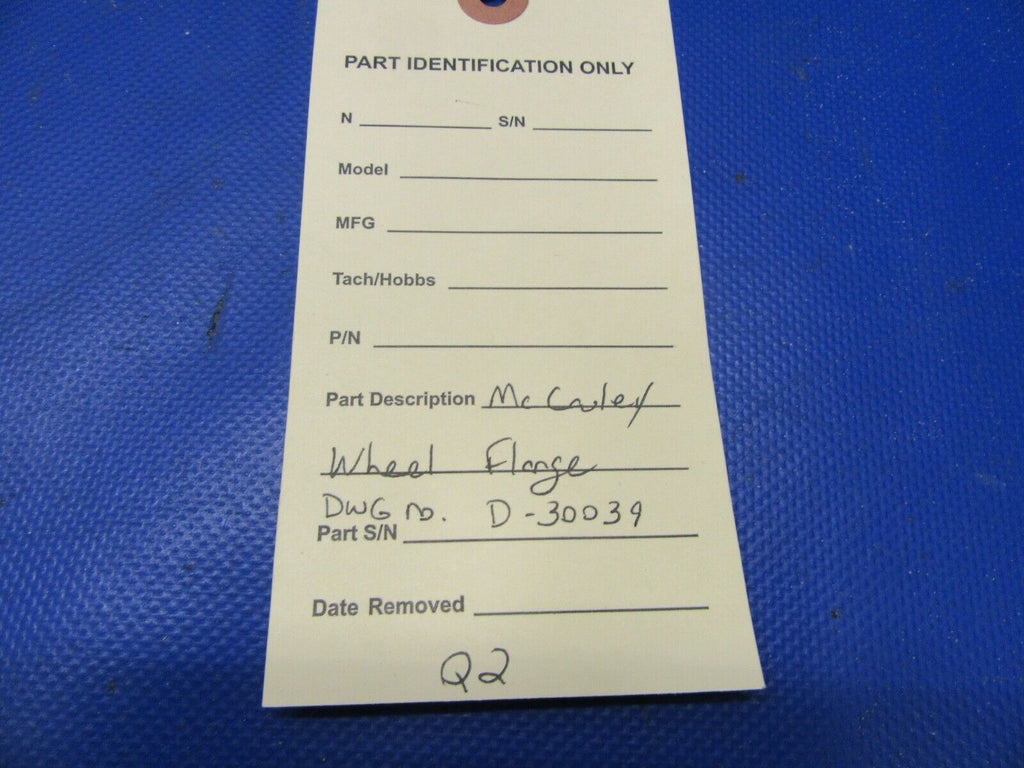 PART IDENTIFICATION ONLY
N S/N
Model
MFG
Tach/Hobbs
P/N
Part Description McCauley
Wheel Flange
DWG no. D-30039
Part S/N
Date Removed
Q2